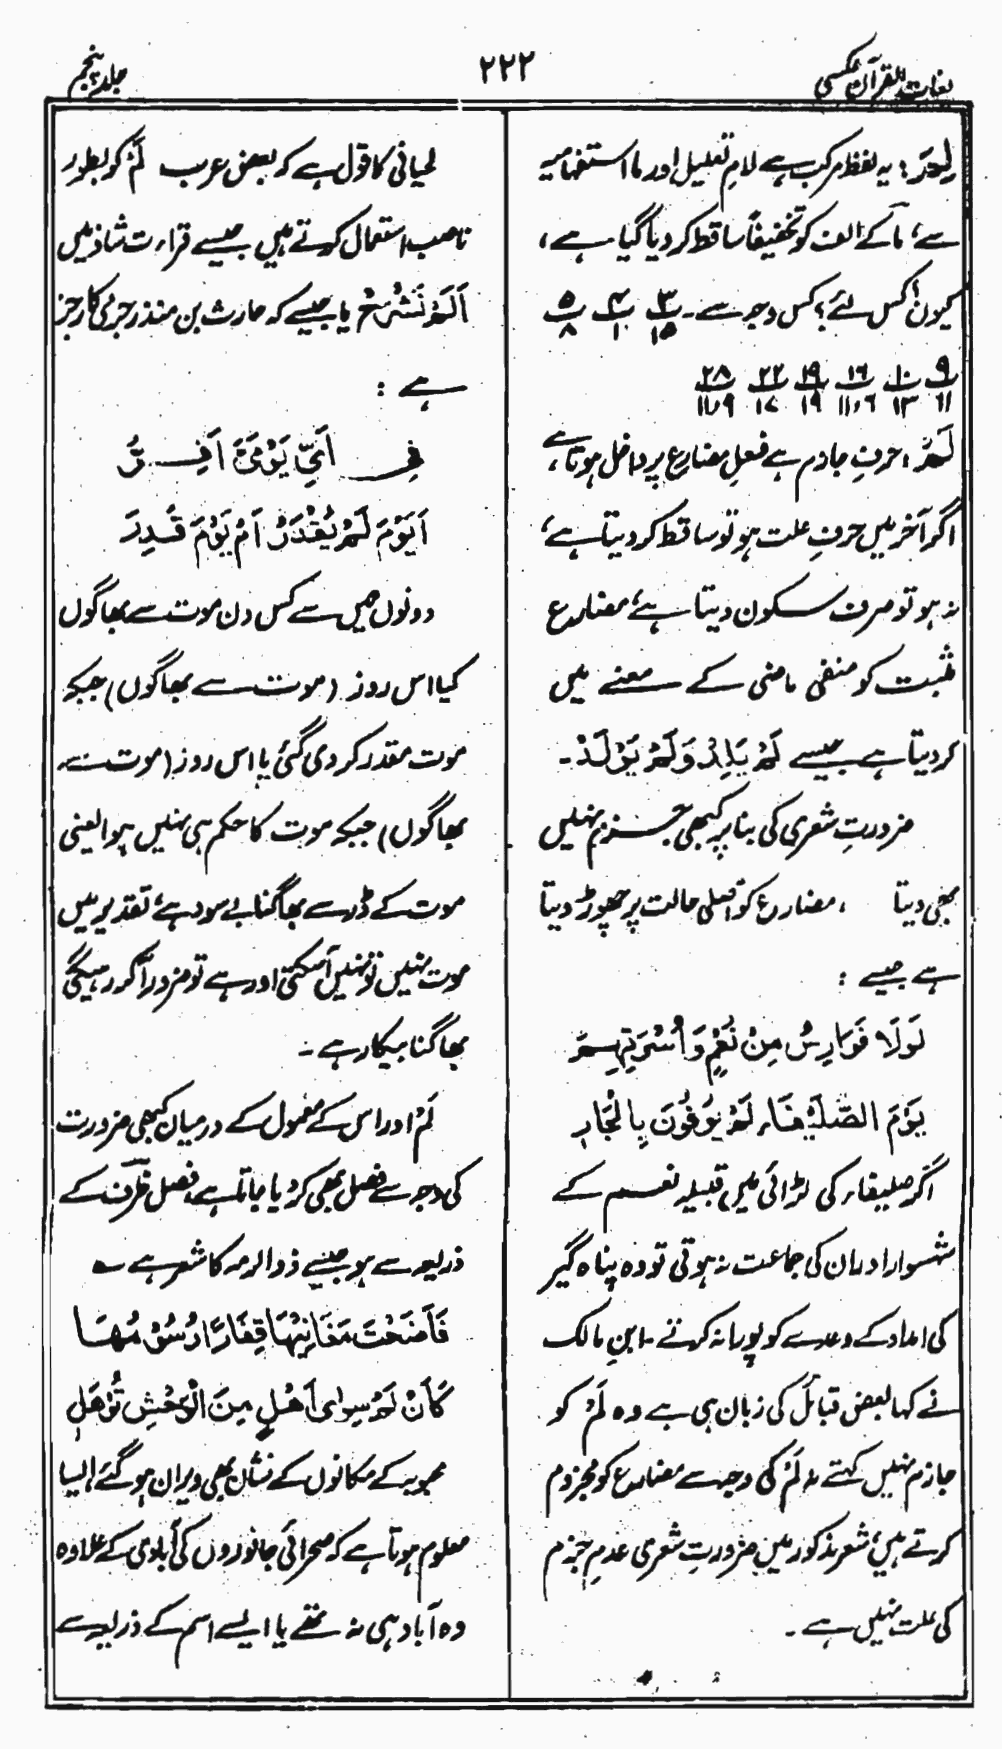 لغات القرآن عکسی
۲۲۲
جلد پنجم
لِمَ : یہ لفظ مرکب ہے لامِ تعلیل اور ما استفہامیہ
سے، ما کے الف کو تخفیفاً ساقط کر دیا گیا ہے،
کیوں؟ کس لئے؟ کس وجہ سے۔ ۳/۱۵ ۴/۱۰ ۵/۸
۹/۱۱ ۱۰/۱۳ ۱۶/۱۱،۶ ۱۹/۱۹ ۲۲/۱۷ ۲۸/۱۱،۹
لَمْ ؛ حرفِ جازم ہے فعلِ مضارع پر داخل ہوتا ہے،
اگر آخر میں حرفِ علت ہو تو ساقط کر دیتا ہے،
نہ ہو تو صرف سکون دیتا ہے، مضارع
مثبت کو منفی ماضی کے معنے میں
کر دیتا ہے جیسے لَمْ یَلِدْ وَلَمْ یُوْلَدْ۔
ضرورتِ شعری کی بنا پر کبھی جزم نہیں
بھی دیتا ، مضارع کو اصلی حالت پر چھوڑ دیتا
ہے جیسے :
لَوْلَا فَوَارِسُ مِنْ نُعْمٍ وَاُسْرَتِهِمْ
یَوْمَ الصُّلَیْفَاء لَمْ یُوْفُوْنَ بِالْجَارِ
اگر صلیفاء کی لڑائی میں قبیلہ نعم کے
شہسوار اور ان کی جماعت نہ ہوتی تو وہ پناہ گیر
کی امداد کے وعدے کو پورا نہ کرتے۔ ابنِ مالک
نے کہا بعض قبائل کی زبان ہی ہے وہ لَمْ کو
جازم نہیں کہتے نہ لَمْ کی وجہ سے مضارع کو مجزوم
کرتے ہیں، شعر مذکور میں ضرورتِ شعری عدمِ جزم
کی علت نہیں ہے۔
لحیانی کا قول ہے کہ بعض عرب لَمْ کو بطور
ناصب استعمال کرتے ہیں جیسے قراءت شاذ میں
اَلَمْ نَشْرَحَ یا جیسے کہ حارث بن منذر جرمی کا رجز
ہے :
فِی اَیِّ یَوْمَیَّ اَفِرُّ
اَیَوْمَ لَمْ یُقْدَرَ اَمْ یَوْمَ قُدِرَ
دونوں میں سے کس دن موت سے بھاگوں
کیا اس روز (موت سے بھاگوں) جبکہ
موت مقدر کر دی گئی یا اس روز (موت سے
بھاگوں) جبکہ موت کا حکم ہی نہیں ہوا یعنی
موت کے ڈر سے بھاگنا بے سود ہے، تقدیر میں
موت نہیں تو نہیں آسکتی اور ہے تو ضرور آکر رہیگی
بھاگنا بیکار ہے۔
لَمْ اور اس کے معمول کے درمیان کبھی ضرورت
کی وجہ سے فصل بھی کر دیا جاتا ہے، فصل ظرف کے
ذریعہ سے ہو جیسے ذوالرمہ کا شعر ہے ؎
فَاَضْحَتْ مَغَانِیْهَا قِفَارًا رُسُوْمُهَا
کَاَنْ لَمْ سِوٰی اَهْلٍ مِنَ الْوَحْشِ تُؤْهَلِ
محبوبہ کے مکانوں کے نشان بھی ویران ہو گئے ایسا
معلوم ہوتا ہے کہ صحرائی جانوروں کی آبادی کے علاوہ
وہ آباد ہی نہ تھے یا ایسے اسم کے ذریعہ سے